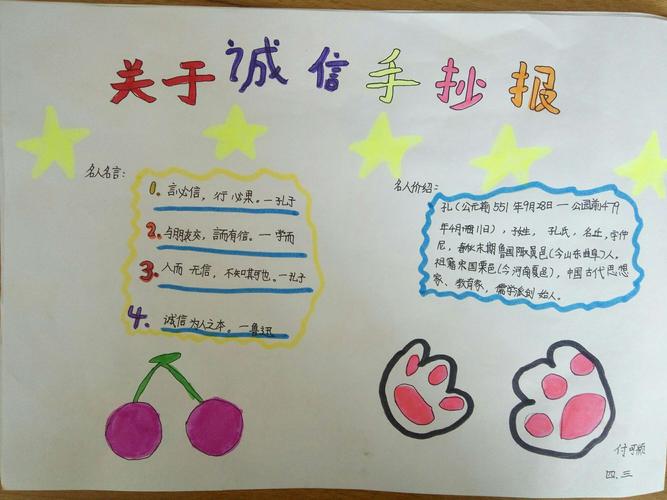 关于诚信手抄报
名人名言:
1. 言必信，行必果。一孔子
2. 与朋友交，言而有信。一学而
3. 人而无信，不知其可也。一孔子
4. 诚信为人之本。一鲁迅
名人介绍:
孔(公元前551年9月28日一公园前479
年4月11日)，子姓，孔氏，名丘，字仲
尼，春秋末期鲁国陬邑(今山东曲阜)人。
祖籍宋国栗邑(今河南夏邑)，中国古代思想
家、教育家，儒学派创始人。
付可颀
四.三